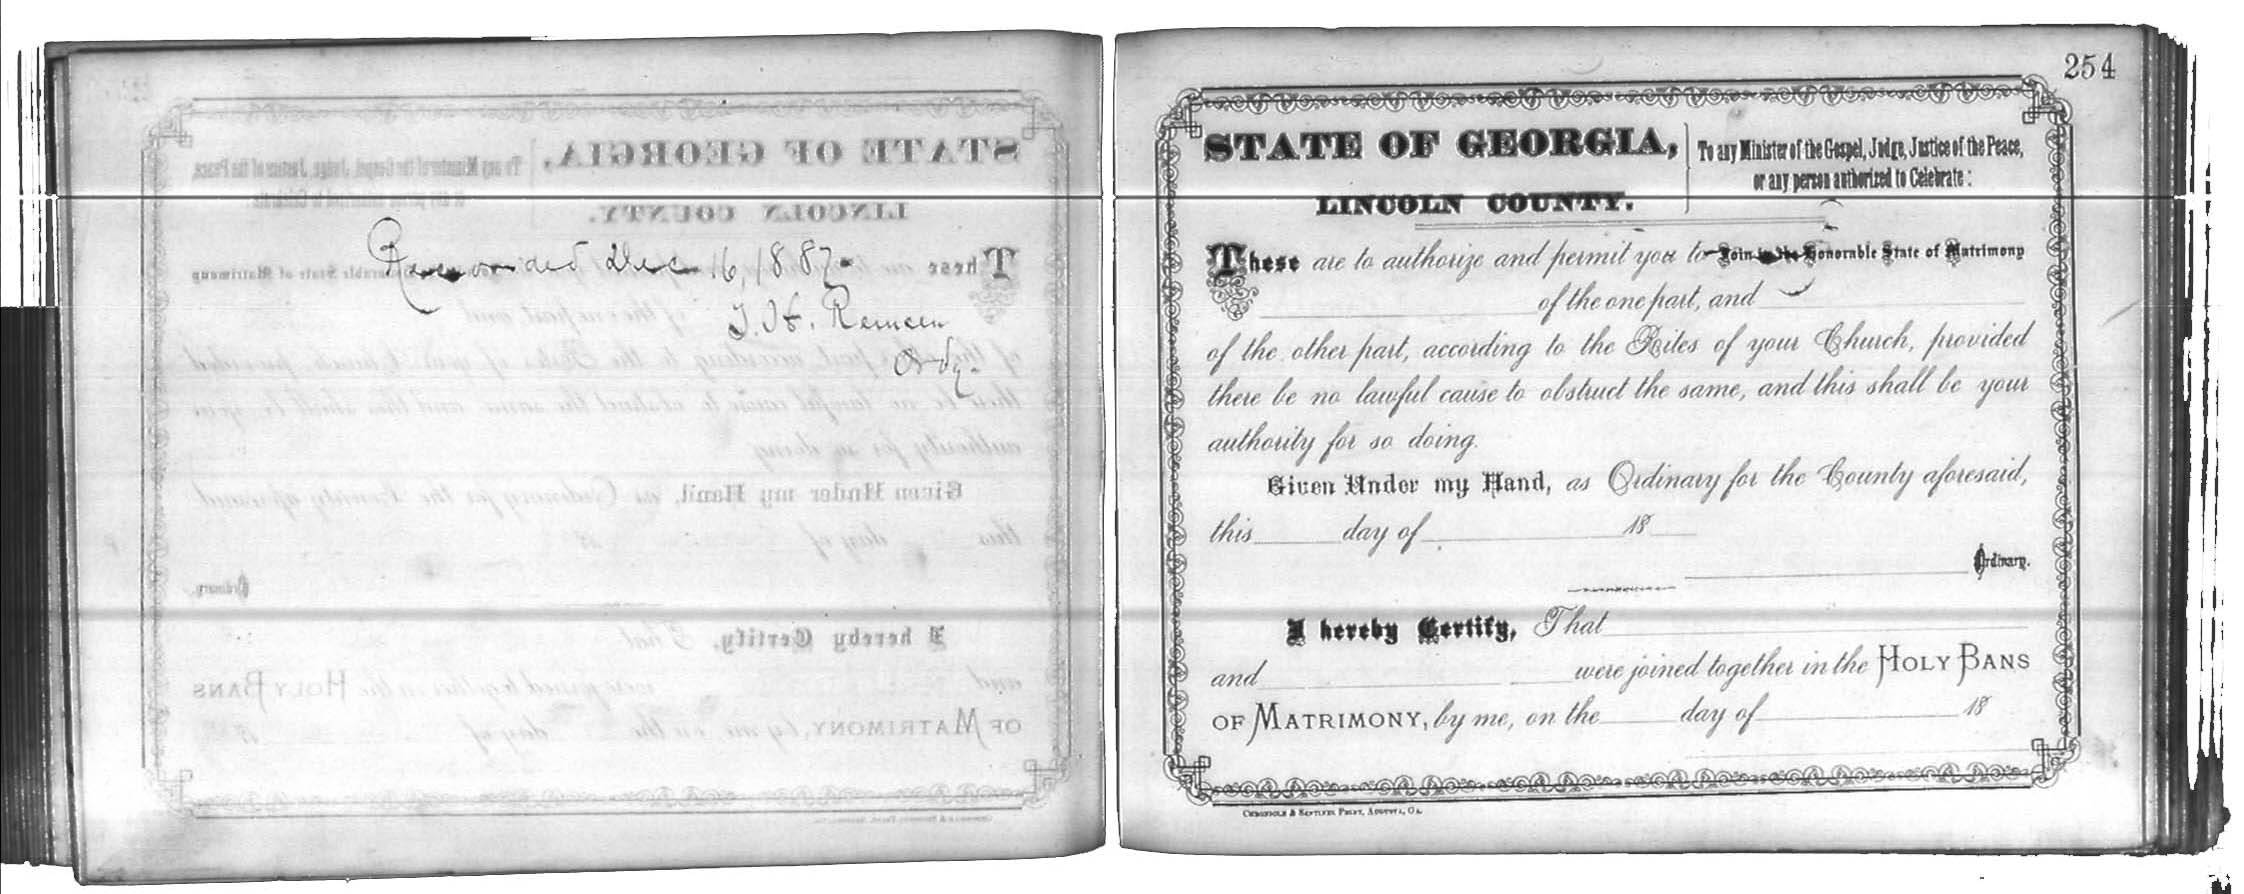 Recorded Dec 16, 1887.
T. H. Remsen
Ordy.
254
STATE OF GEORGIA,
LINCOLN COUNTY.
To any Minister of the Gospel, Judge, Justice of the Peace,
or any person authorized to Celebrate:
These are to authorize and permit you to Join in the Honorable State of Matrimony
of the one part, and
of the other part, according to the Rites of your Church, provided
there be no lawful cause to obstruct the same, and this shall be your
authority for so doing.
Given Under my Hand, as Ordinary for the County aforesaid,
this day of 18
Ordinary.
I hereby Certify, That
and were joined together in the HOLY BANS
OF MATRIMONY, by me, on the day of 18
CHRONICLE & SENTINEL PRINT, AUGUSTA, GA.